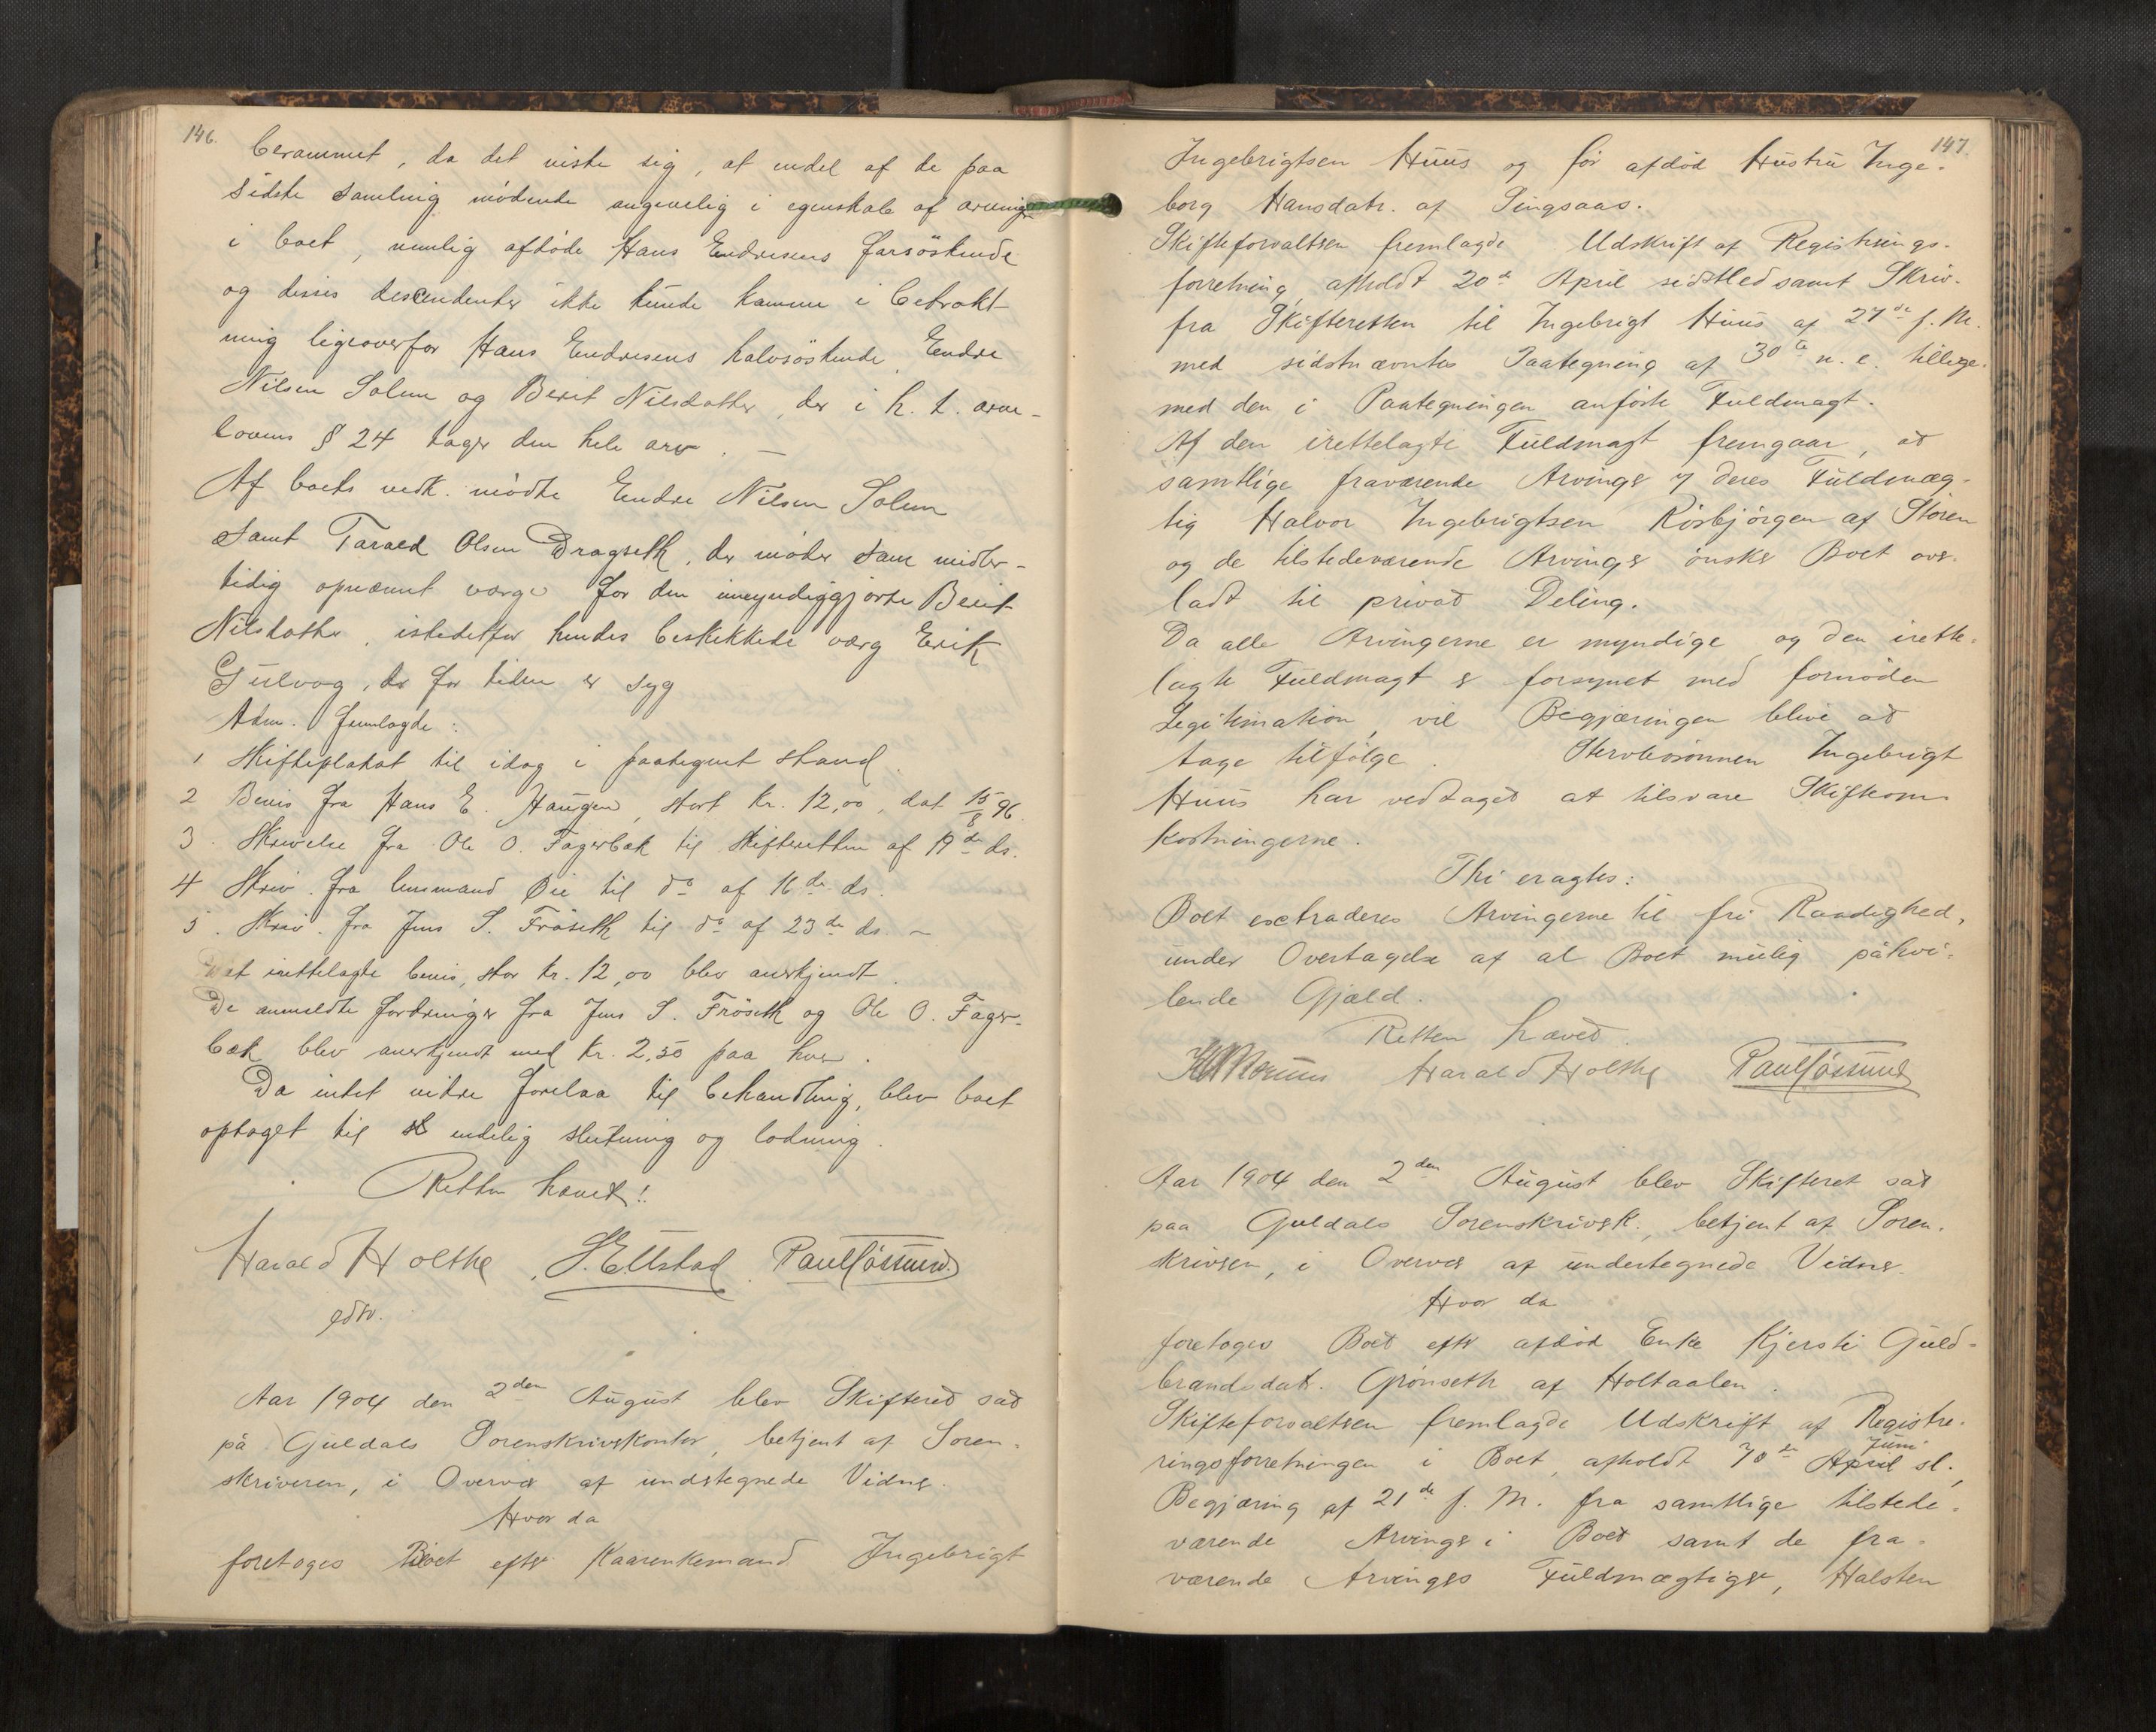 146.
berammet, da det viste sig, at endel af de paa
sidste samling mödende angivelig i egenskab af arvinger
i boet, nemlig afdöde Hans Endresens farsöskende
og disses descendenter ikke kunde komme i betrakt-
ning ligeoverfor Hans Endresens halvsöskende Endre
Nilsen Solem og Berit Nilsdatter, der i h. t. arve-
lovens § 24 tager den hele arv. —
Af boets vedk. mödte Endre Nilsen Solem
samt Tarald Olsen Dragseth, der möder som midler-
tidig opnævnt værge for den umyndiggjorte Berit
Nilsdatter, istedetfor hendes beskikkede værg Erik
Gulvog, der for tiden er syg
Adm. fremlagde:
1 Skifteplakat til idag i paategnet stand.
2 Bevis fra Hans E. Haugen, stort Kr. 12,00, dat 15/8 96.
3. Skrivelse fra Ole O. Fagerbæk til skifteretten af 19de ds.
4 Skriv. fra lensmand Øie til do af 16de ds.
5. Skriv. fra Jens S. Fröseth til do af 23de ds. —
Det irettelagte bevis, stor kr. 12,00 blev anerkjendt.
De anmeldte fordringer fra Jens S. Fröseth og Ole O. Fager-
bæk blev anerkjendt med Kr. 2,50 paa hver.
Da intet videre forelaa til behandling, blev boet
optaget til endelig slutning og lodning.
Retten hævet!
Harald Holthe, S. Ettstad. Paul Gåssund.
edsv.
Aar 1904 den 2den August blev Skifteret sat
på Guldals Sorenskriverkontor, betjent af Soren-
skriveren, i Overvær af undertegnede Vidner.
Hvor da
foretoges Boet efter Kaarenkemand Ingebrigt
147.
Ingebrigtsen Huus og før afdød Hustru Inge-
borg Hansdatr. af Singsaas.
Skifteforvalteren fremlagde Udskrift af Registrerings-
forretning afholdt 20de April sidstled samt Skriv.
fra Skifteretten til Ingebrigt Huus af 27de f. M.
med sidstnævntes Paategning af 30te n. e. tillige-
med den i Paategningen anførte Fuldmagt.
Af den irettelagte Fuldmagt fremgaar, at
samtlige fraværende Arvinger v/ deres Fuldmæg-
tig Halvor Ingebrigtsen Rösbjörgen af Støren
og de tilstedeværende Arvinger ønsker Boet over-
ladt til privat Deling.
Da alle Arvingerne er myndige og den irette-
lagte Fuldmagt er forsynet med fornøden
Legitimation, vil Begjæringen blive at
tage tilfølge. Stervbosønnen Ingebrigt
Huus har vedtaget at tilsvare Skifteom-
kostningerne.
Thi eragtes:
Boet extraderes Arvingerne til fri Raadighed,
under Overtagelse af al Boet mulig påhvi-
lende Gjæld.
Retten hævet.
Harald Holthe Paul Gåssund
Aar 1904 den 2den August blev Skifteret sat
paa Guldals Sorenskriverk., betjent af Soren-
skriveren, i Overvær af undertegnede Vidner.
Hvor da
foretoges Boet efter afdød Enke Kjersti Guld-
brandsdatr. Grönseth af Holtaalen.
Skifteforvalteren fremlagde Udskrift af Registre-
ringsforretningen i Boet, afholdt 30de April Juni sl.,
Begjæring af 21de f. M. fra samtlige tilstede-
værende Arvinger i Boet samt de fra-
værende Arvingers Fuldmægtiger, Halsten